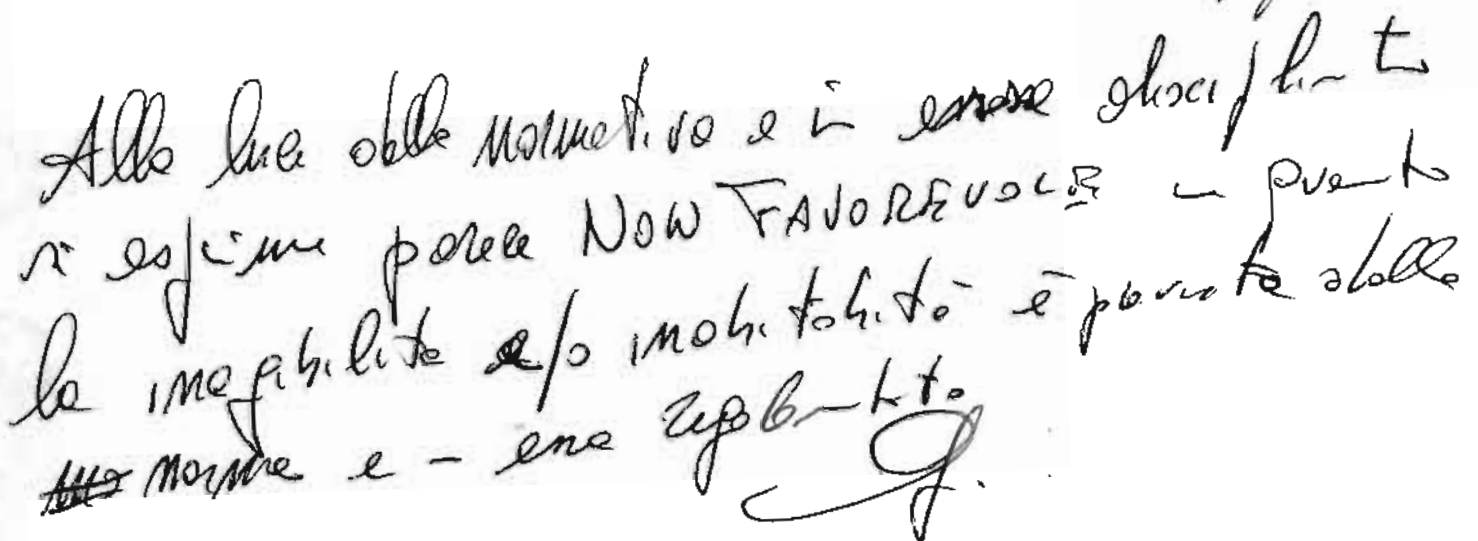 Alla luce della normativa e in essa disciplinato
si esprime parere NON FAVOREVOLE in quanto
la inagibilità e/o inabitabilità è prevista dalla
norma e in essa regolamentata